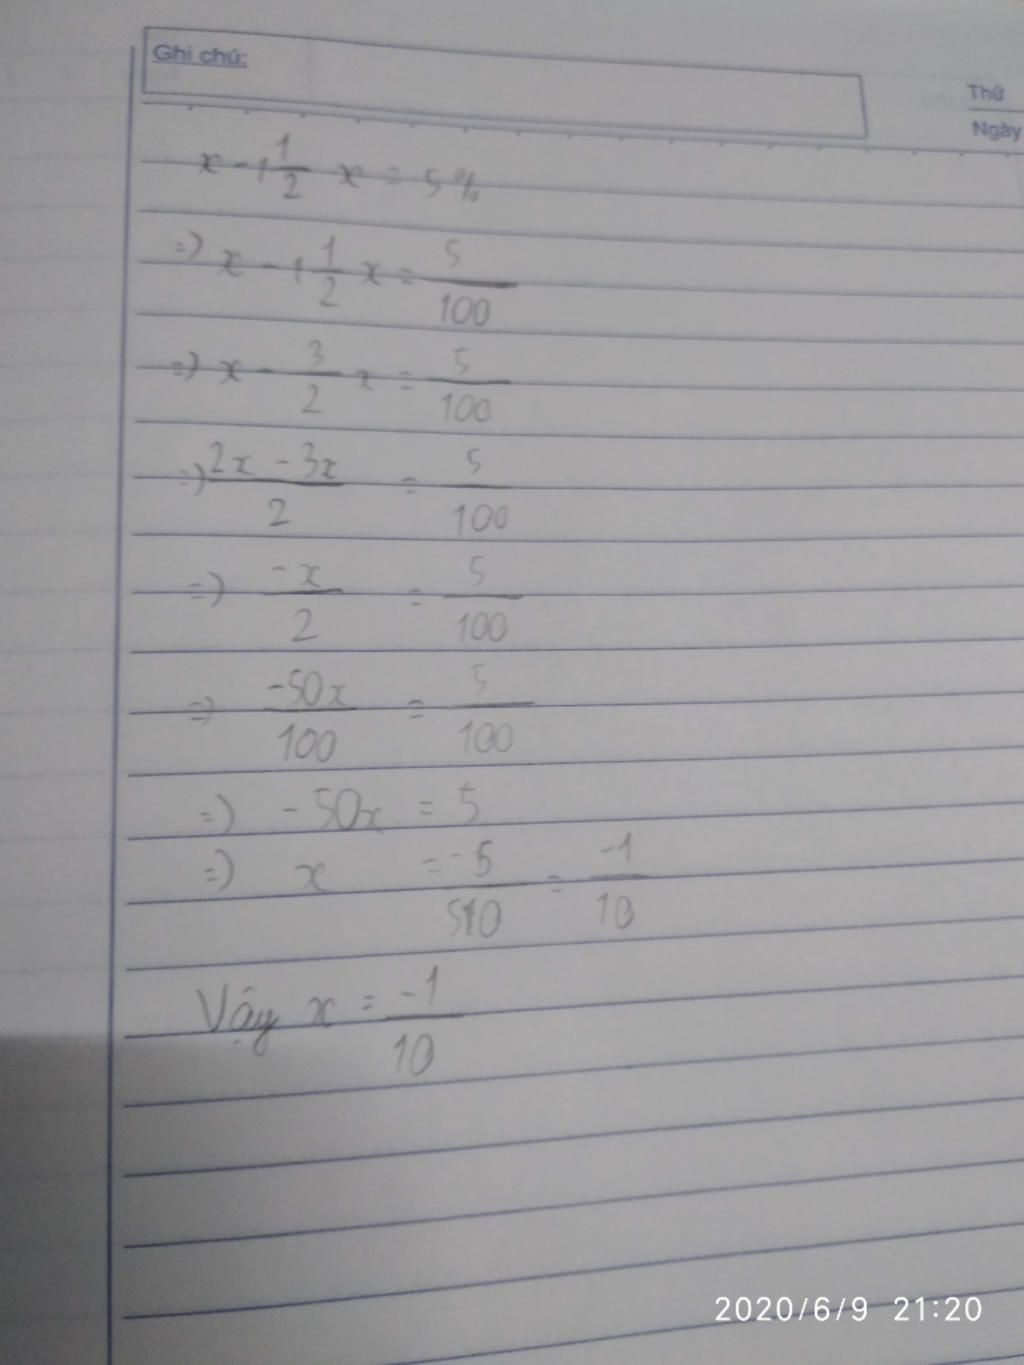 Ghi chú:
Thứ
Ngày
x - 1 1/2 x = 5%
=> x - 1 1/2 x = 5/100
=> x - 3/2 x = 5/100
=> (2x - 3x)/2 = 5/100
=> -x/2 = 5/100
=> -50x/100 = 5/100
=> - 50x = 5
=> x = -5/50 = -1/10
Vậy x = -1/10
2020/6/9 21:20